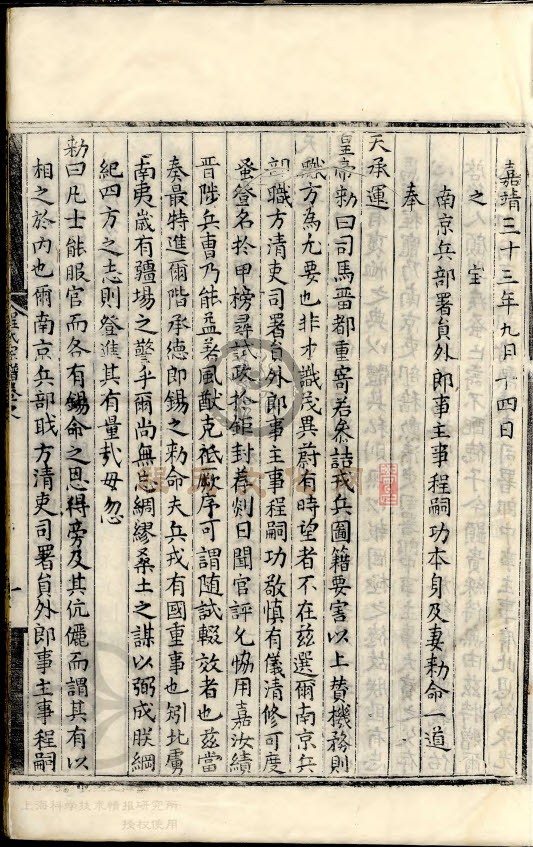 嘉靖三十三年九月十四日
之寶
南京兵部署員外郎事主事程嗣功本身及妻勑命一道
奉
天承運
皇帝勑曰司馬晉都重寄若叅詰戎兵圖籍要害以上贊機務則
職方為尤要也非才識茂異蔚有時望者不在茲選爾南京兵
部職方清吏司署員外郎事主事程嗣功敬慎有儀清修可度
蚤登名於甲榜尋試政於銓封荐剡日聞官評允恊用嘉汝績
晉陟兵曹乃能益著風猷克祗厥序可謂隨試輙效者也茲當
奏最特進爾階承德郎錫之勑命夫兵戎有國重事也矧北虜
南夷歲有疆場之警乎爾尚無忘綢繆桑土之謀以弼成朕綱
紀四方之志則登進其有量哉毋忽
勑曰凡士能服官而各有錫命之恩得旁及其伉儷而謂其有以
相之於內也爾南京兵部職方清吏司署員外郎事主事程嗣
程氏宗譜卷之
一
上海科學技术情报研究所
授权使用